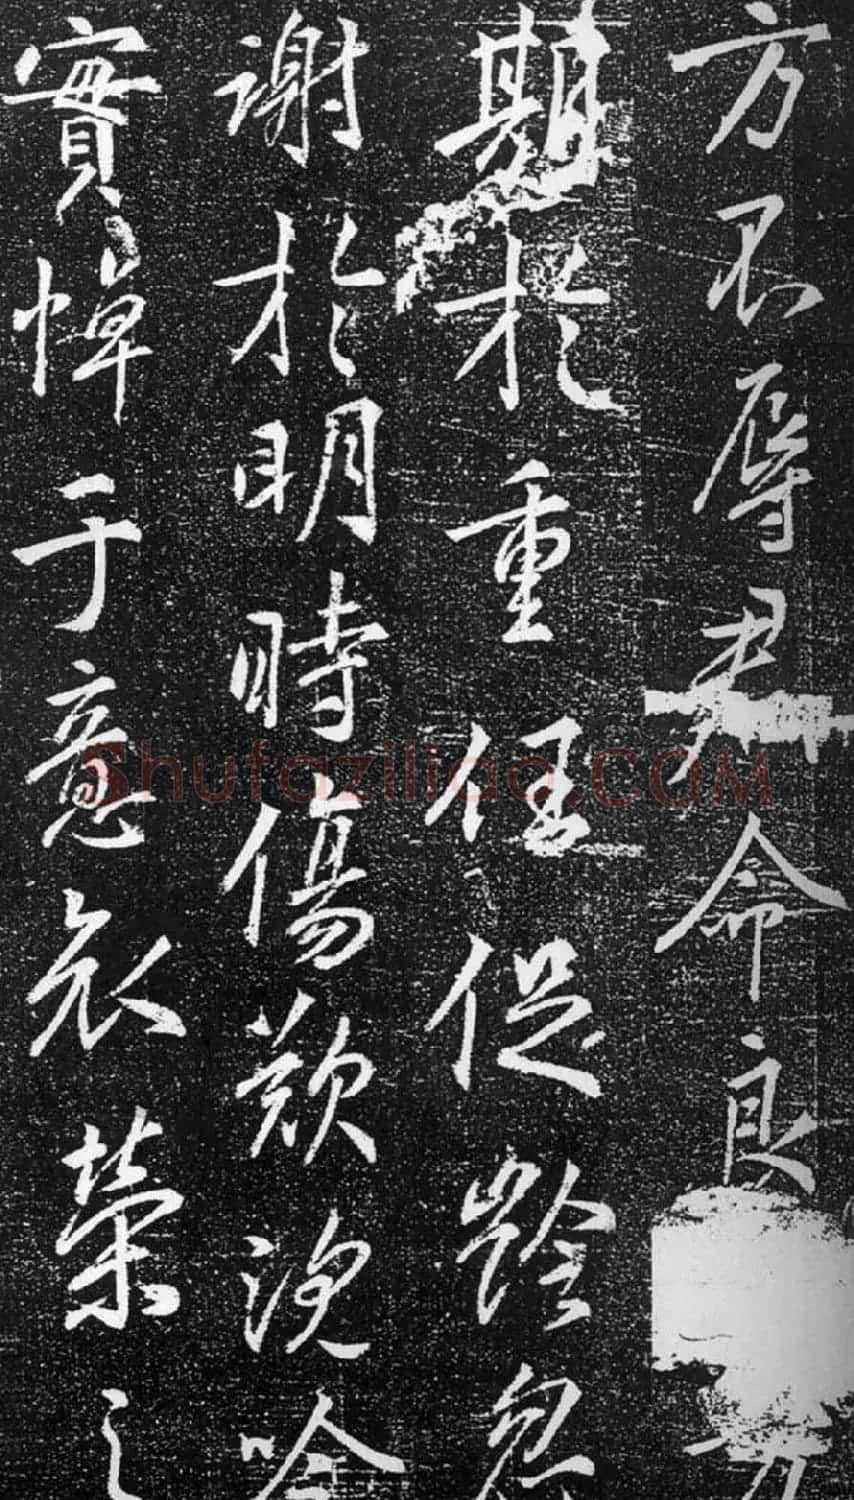 方不辱君命良方
期於重任促齡忽
謝於明時傷歎吟
實悼于意哀榮之
Shufaziliao.COM